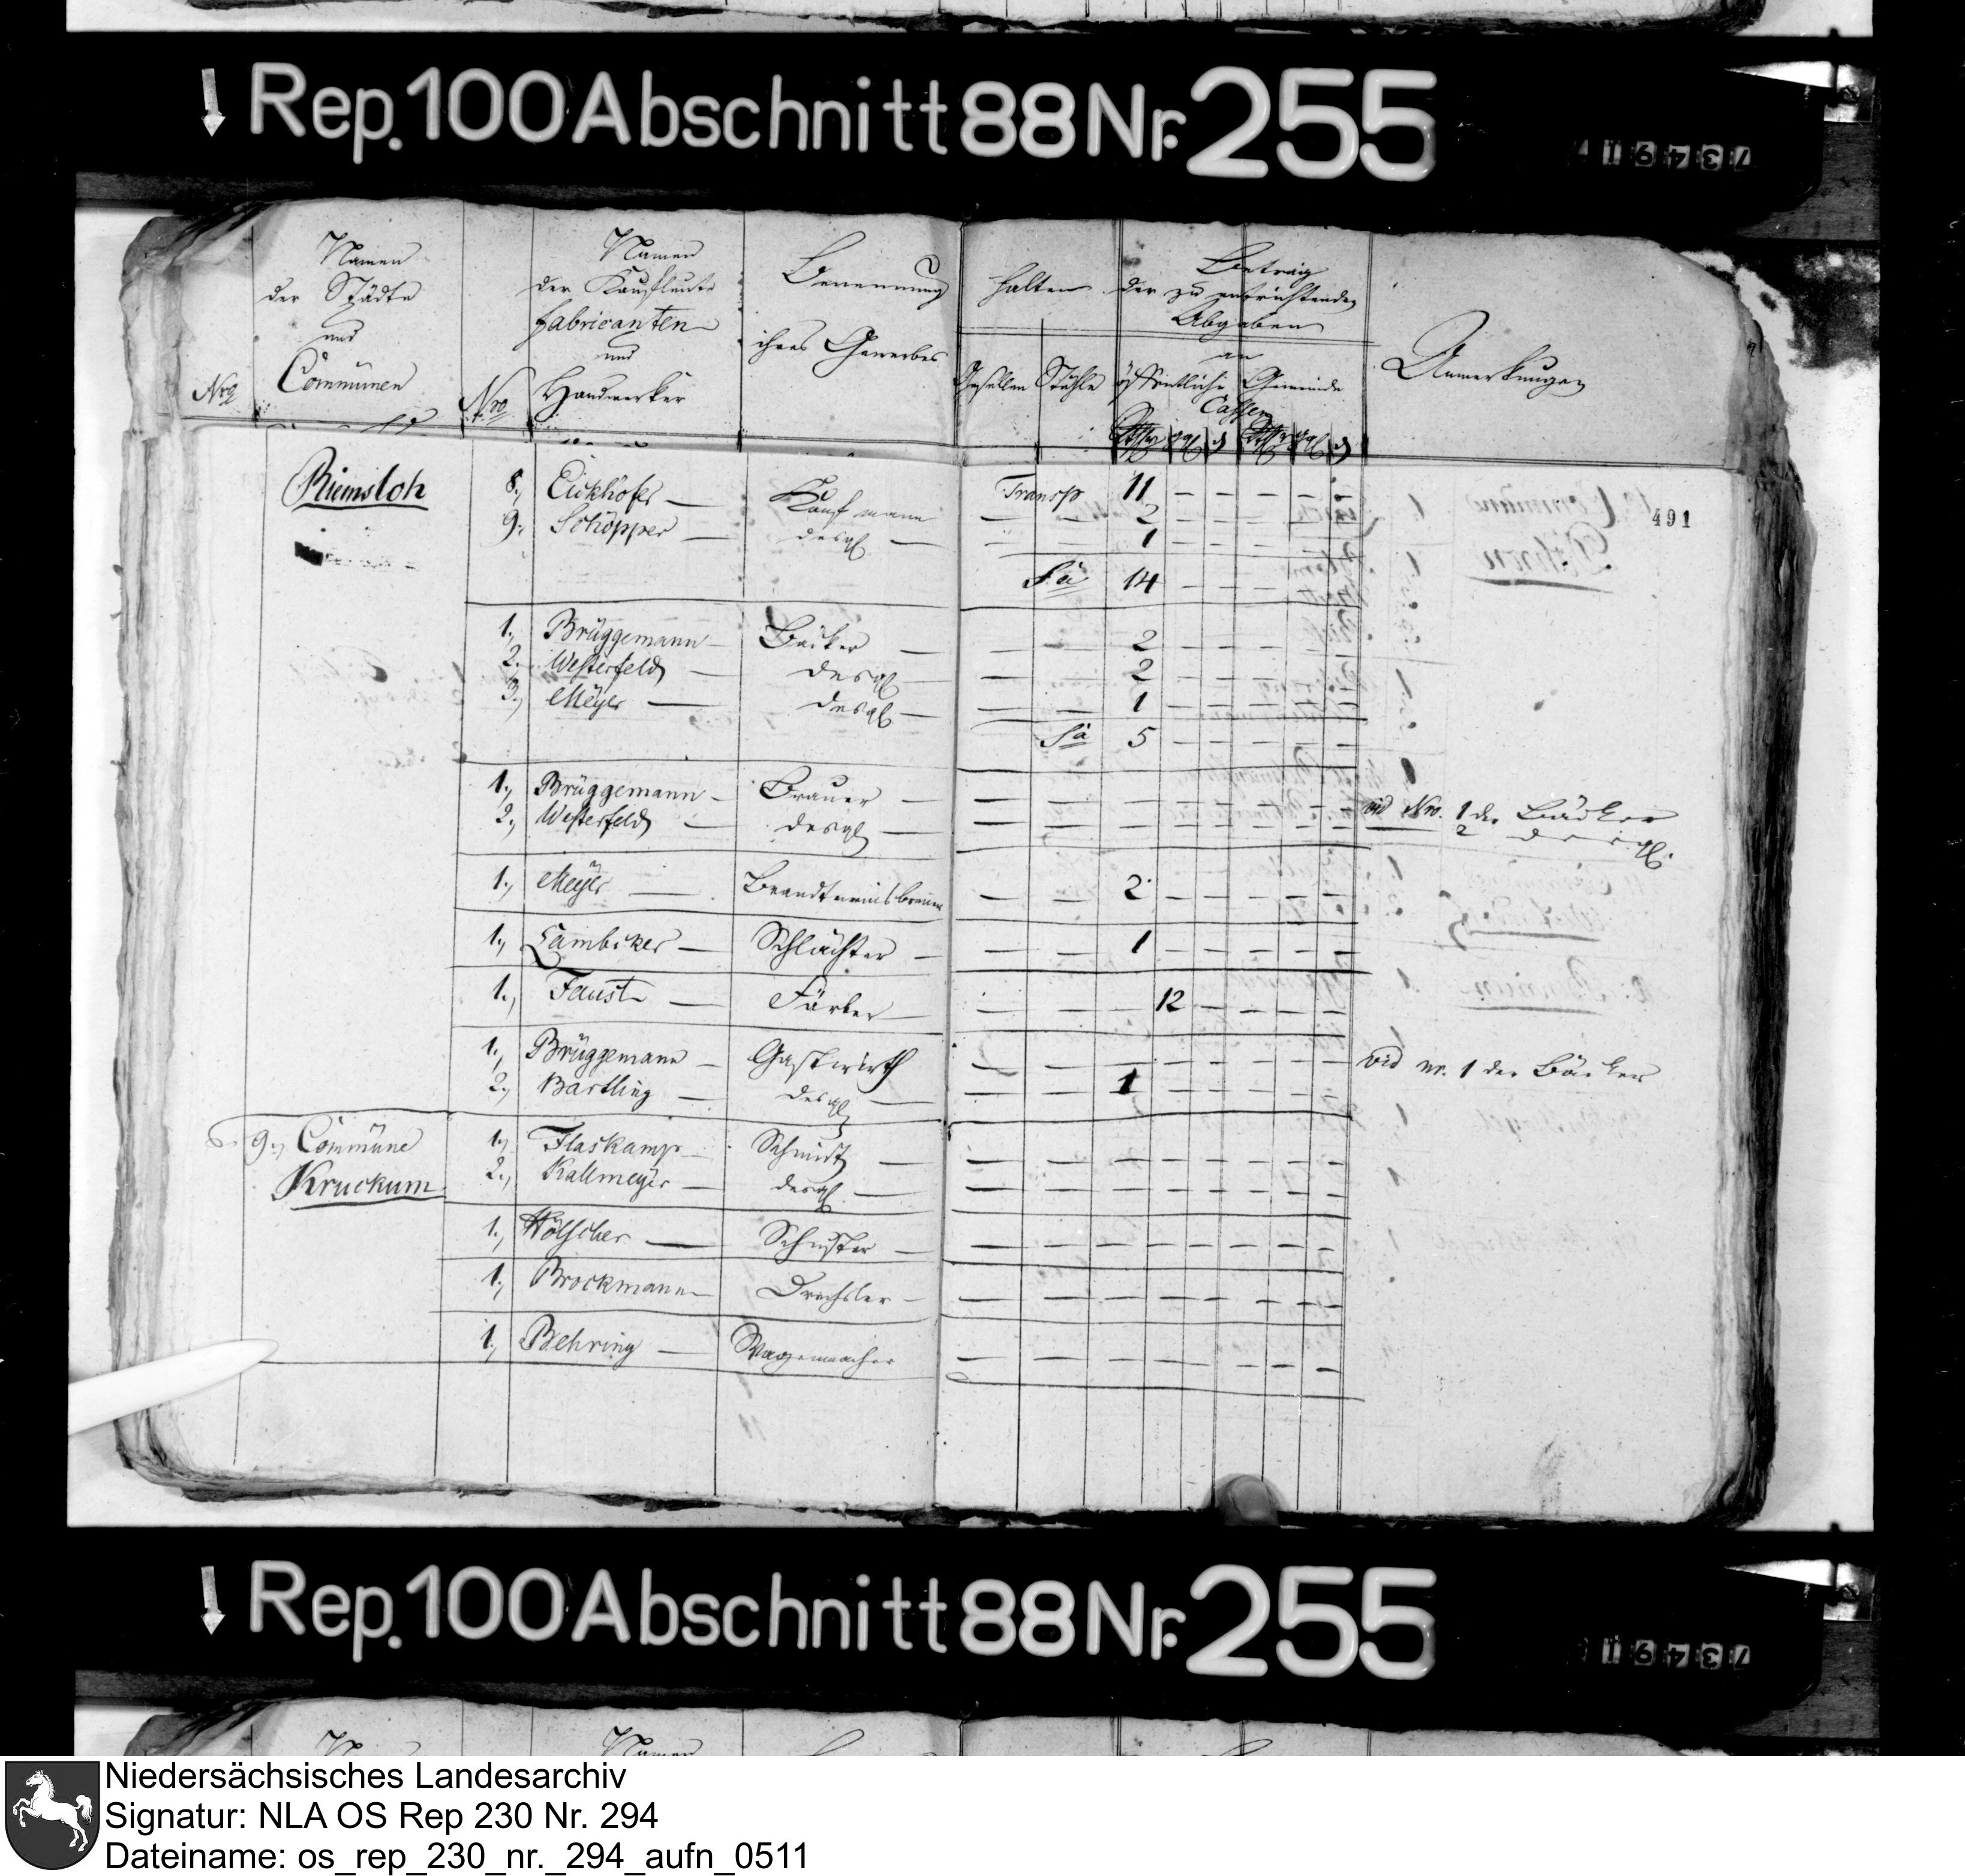 Rep. 100 Abschnitt 88 Nr. 255
Nro
Namen
der Städte
und
Communen
Nro
Namen
der Kaufleute
Fabricanten
und
Handwerker
Benennung
ihres Gewerbes
halten
Gesellen Stühle
Betrag
der zu entrichtenden
Abgaben
an
öffentliche Gemeinde
Cassen
Anmerkungen
491
Riemsloh
Transp 11 – – – – –
8., Eickhöfer — Kaufmann — — 2 – – – – –
9., Schöpper — desgl — — — 1 – – – – –
Sa 14 – – – – –
1., Brüggemann — Bäcker — — — 2 – – – – –
2., Westerfeld — desgl — — — 2 – – – – –
3., Meÿer — desgl — — — 1 – – – – –
Sa 5 – – – – –
1., Brüggemann — Brauer — — — – – – – – – vid Nro. 1 der Bäcker
2., Westerfeld — desgl — — — – – – – – – 2 desgl.
1., Meÿer — Brandtweinsbrenner — — 2 – – – – –
1., Lambker — Schlächter — — — 1 – – – – –
1., Faust — Färber — — — – 12 – – – –
1., Brüggemann — Gastwirth — — – – – – – – vid nr. 1 der Bäcker
2., Bartling — desgl — — — 1 – – – – –
9., Commüne
Kruckum
1., Flaskamp — Schmidt — — — – – – – – –
2., Kallmeÿer — desgl. — — — – – – – – –
1., Hölscher — Schuster — — — – – – – – –
1., Brockmann — Drechsler — — — – – – – – –
1., Behring — Wagemacher — — – – – – – –
Rep. 100 Abschnitt 88 Nr. 255
Namen
Namen
Niedersächsisches Landesarchiv
Signatur: NLA OS Rep 230 Nr. 294
Dateiname: os_rep_230_nr._294_aufn_0511